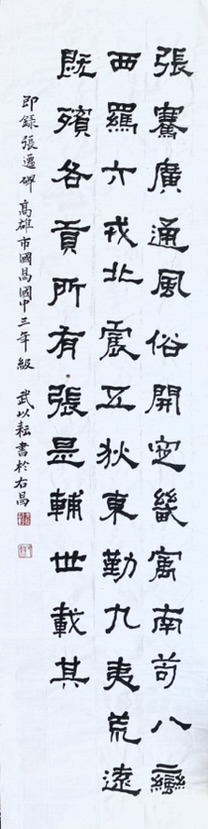 張騫廣通風俗開定畿寓南苞八蠻
西羈六戎北震五狄東勤九夷荒遠
既殯各貢所有張是輔世載其
即錄張遷碑 高雄市國昌國中三年級 武以耘書於右昌